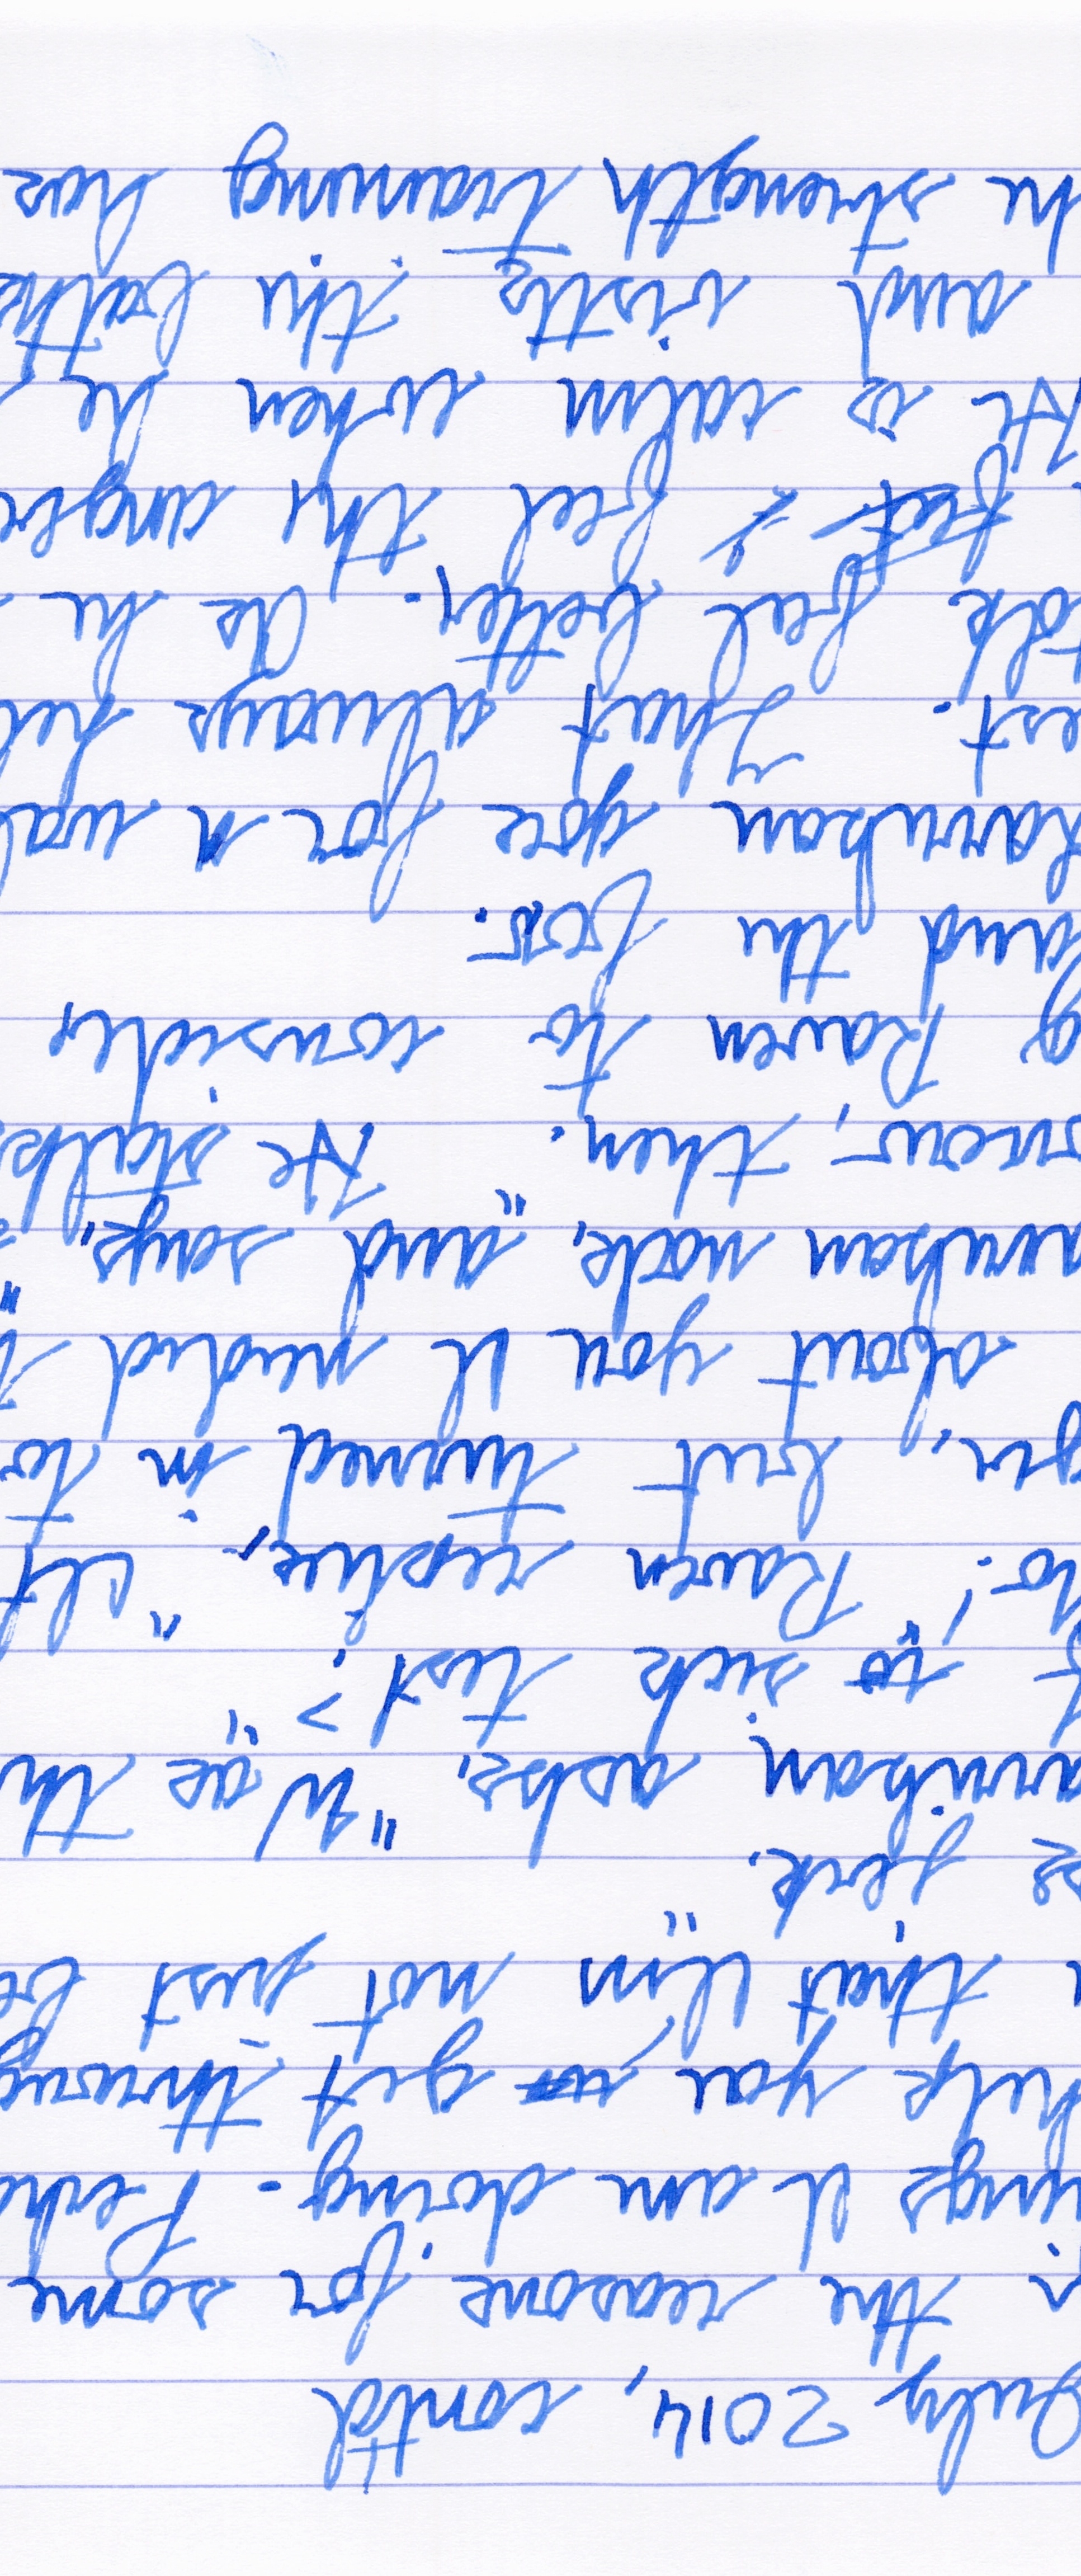 July 2014, contd
the reasons for some
ings I am doing. Perha
help you get throug
that I'm not just be
se jerk."
arnihan asks, "Was th
to sick test?"
No!" Raven replies, "
ger, but turned in to
about you I needed
arnihan nods, "and says, "
nswer, then." He stalks
g Raven to consider
and the for.
arnihan goes for a wal
est. That always hel
feel better. As he
feet feel the anger
He is calm when he
and visits the bathe
he strength training has